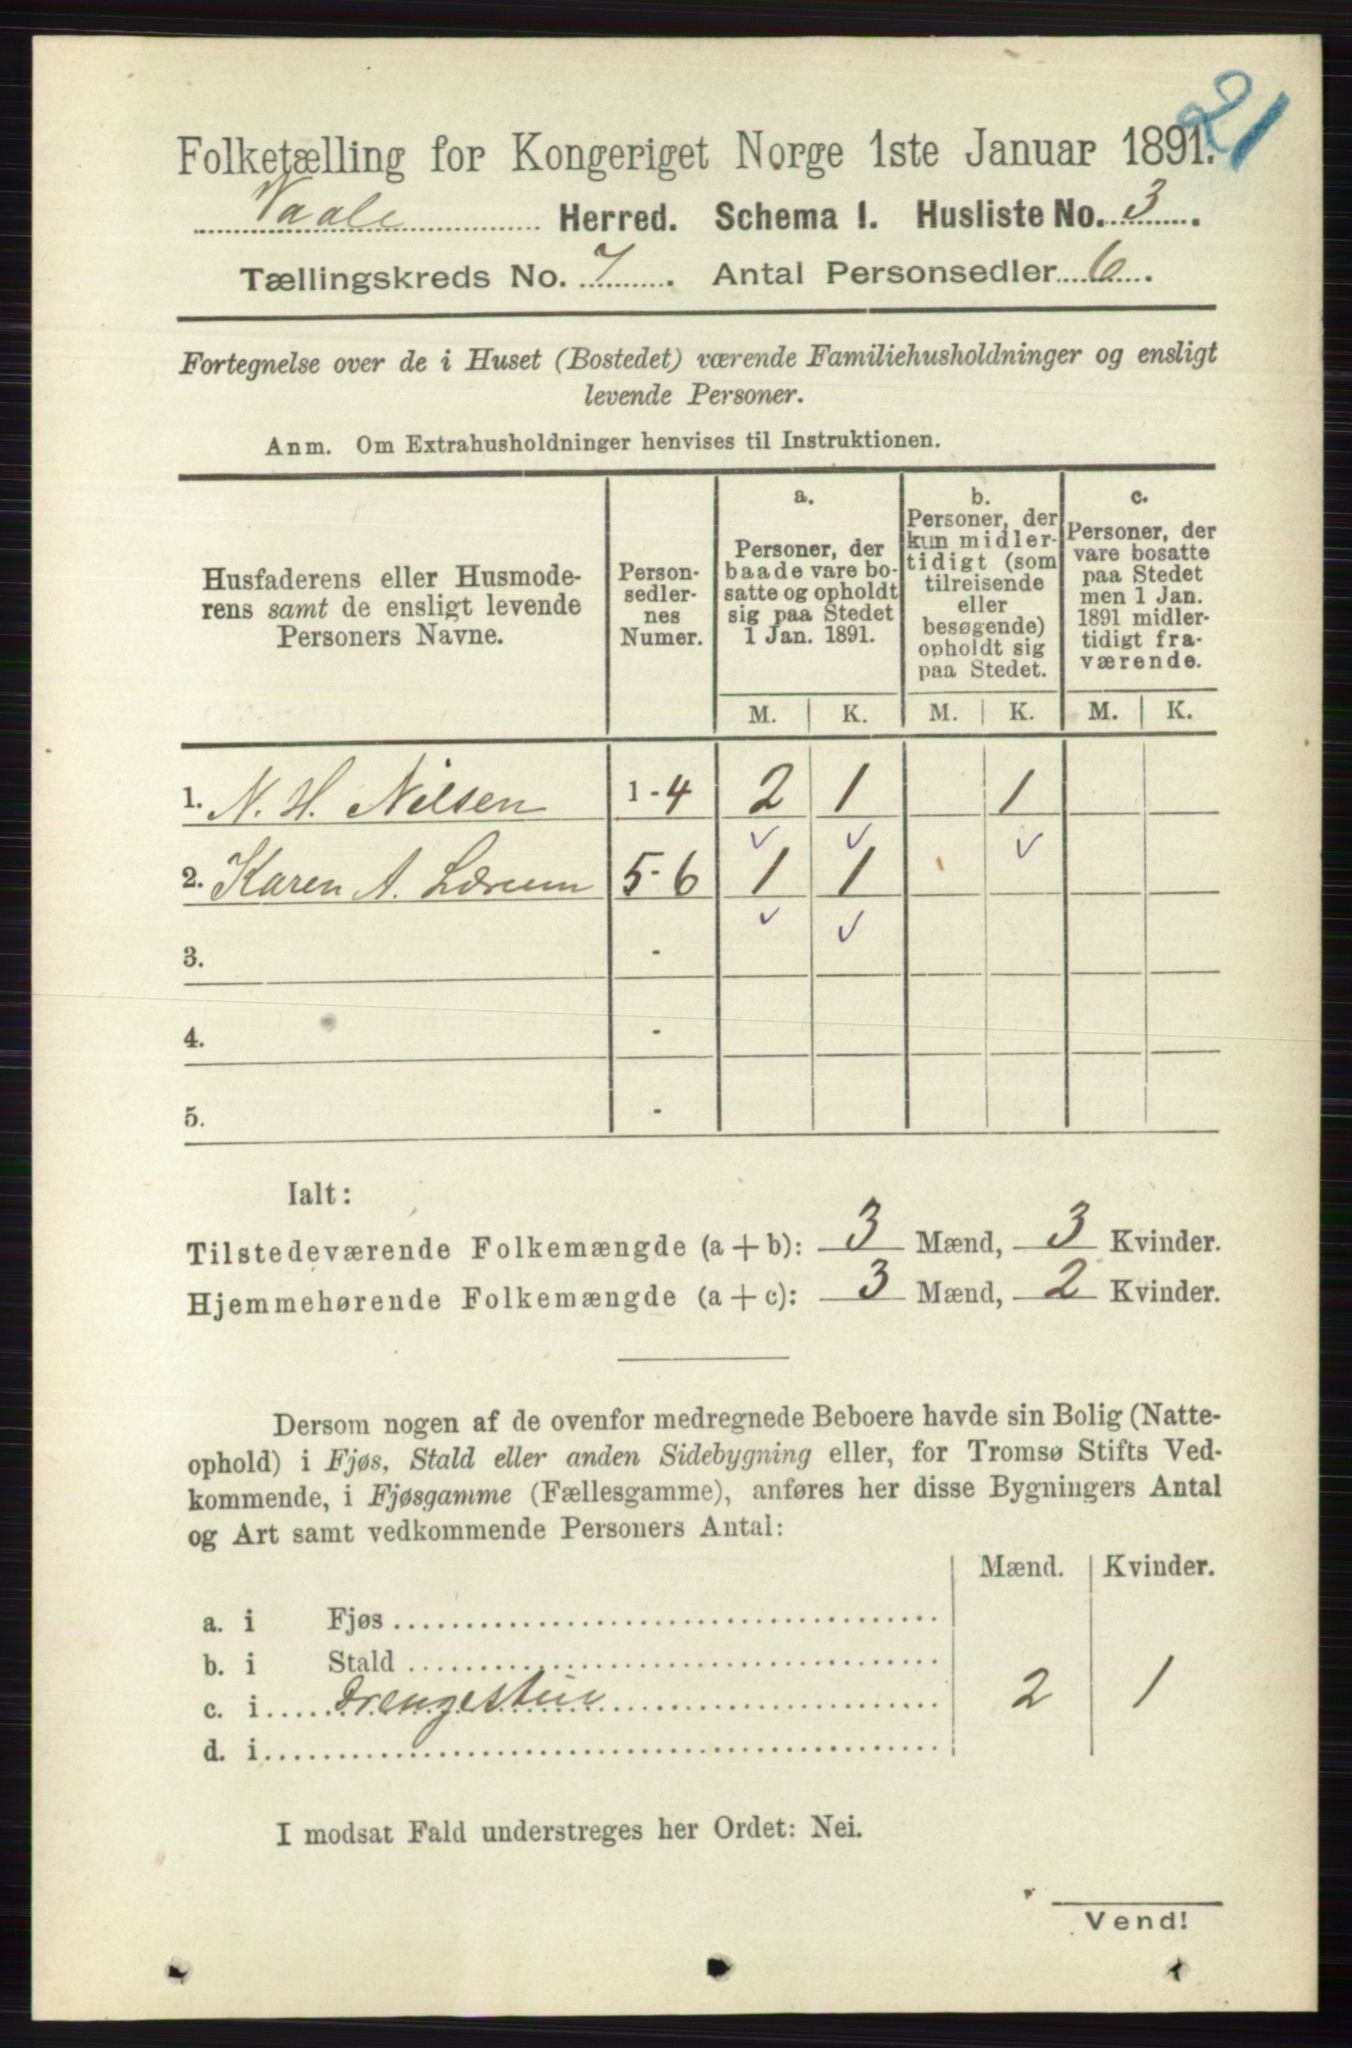 21
Folketælling for Kongeriget Norge 1ste Januar 1891.
Vaale Herred. Schema I. Husliste No. 3.
Tællingskreds No. 7. Antal Personsedler 6.
Fortegnelse over de i Huset (Bostedet) værende Familiehusholdninger og ensligt
levende Personer.
Anm. Om Extrahusholdninger henvises til Instruktionen.
Husfaderens eller Husmode-
rens samt de ensligt levende
Personers Navne.
Person-
sedler-
nes
Numer.
a.
Personer, der
baade vare bo-
satte og opholdt
sig paa Stedet
1 Jan. 1891.
b.
Personer, der
kun midler-
tidigt (som
tilreisende
eller
besøgende)
opholdt sig
paa Stedet.
c.
Personer, der
vare bosatte
paa Stedet
men 1 Jan.
1891 midler-
tidigt fra-
værende.
M. K. M. K. M. K.
1. N. H. Nilsen 1-4 2 1 1
2. Karen A. Lærum 5-6 1 1
3. -
4. -
5. -
Ialt:
Tilstedeværende Folkemængde (a + b): 3 Mænd, 3 Kvinder.
Hjemmehørende Folkemængde (a + c): 3 Mænd, 2 Kvinder.
Dersom nogen af de ovenfor medregnede Beboere havde sin Bolig (Natte-
ophold) i Fjøs, Stald eller anden Sidebygning eller, for Tromsø Stifts Ved-
kommende, i Fjøsgamme (Fællesgamme), anføres her disse Bygningers Antal
og Art samt vedkommende Personers Antal:
Mænd. Kvinder.
a. i Fjøs
b. i Stald
c. i Drengestue 2 1
d. i
I modsat Fald understreges her Ordet: Nei.
Vend!